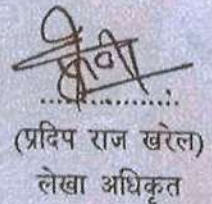 (प्रदिप राज खरेल)
लेखा अधिकृत